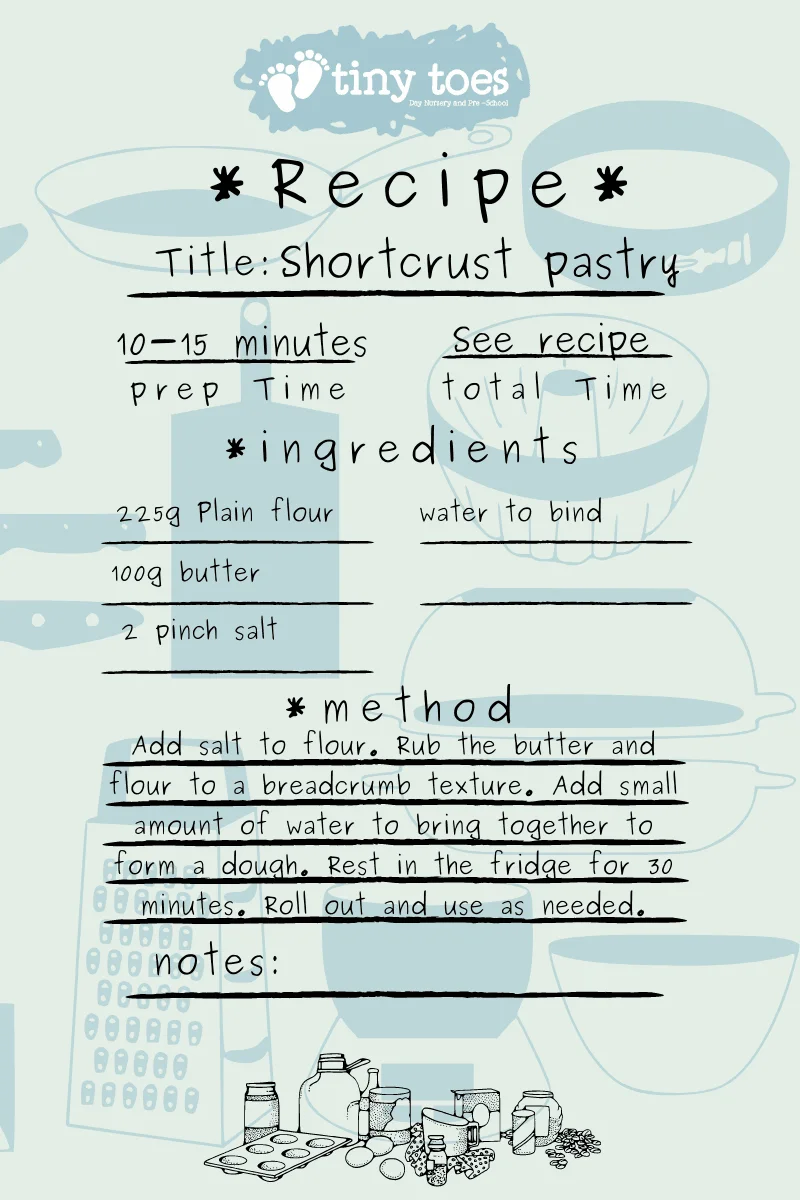 tiny toes
Day Nursery and Pre-School
*Recipe*
Title: Shortcrust pastry
10-15 minutes
prep Time
See recipe
total Time
*ingredients
225g Plain flour
100g butter
2 pinch salt
water to bind
*method
Add salt to flour. Rub the butter and
flour to a breadcrumb texture. Add small
amount of water to bring together to
form a dough. Rest in the fridge for 30
minutes. Roll out and use as needed.
notes: